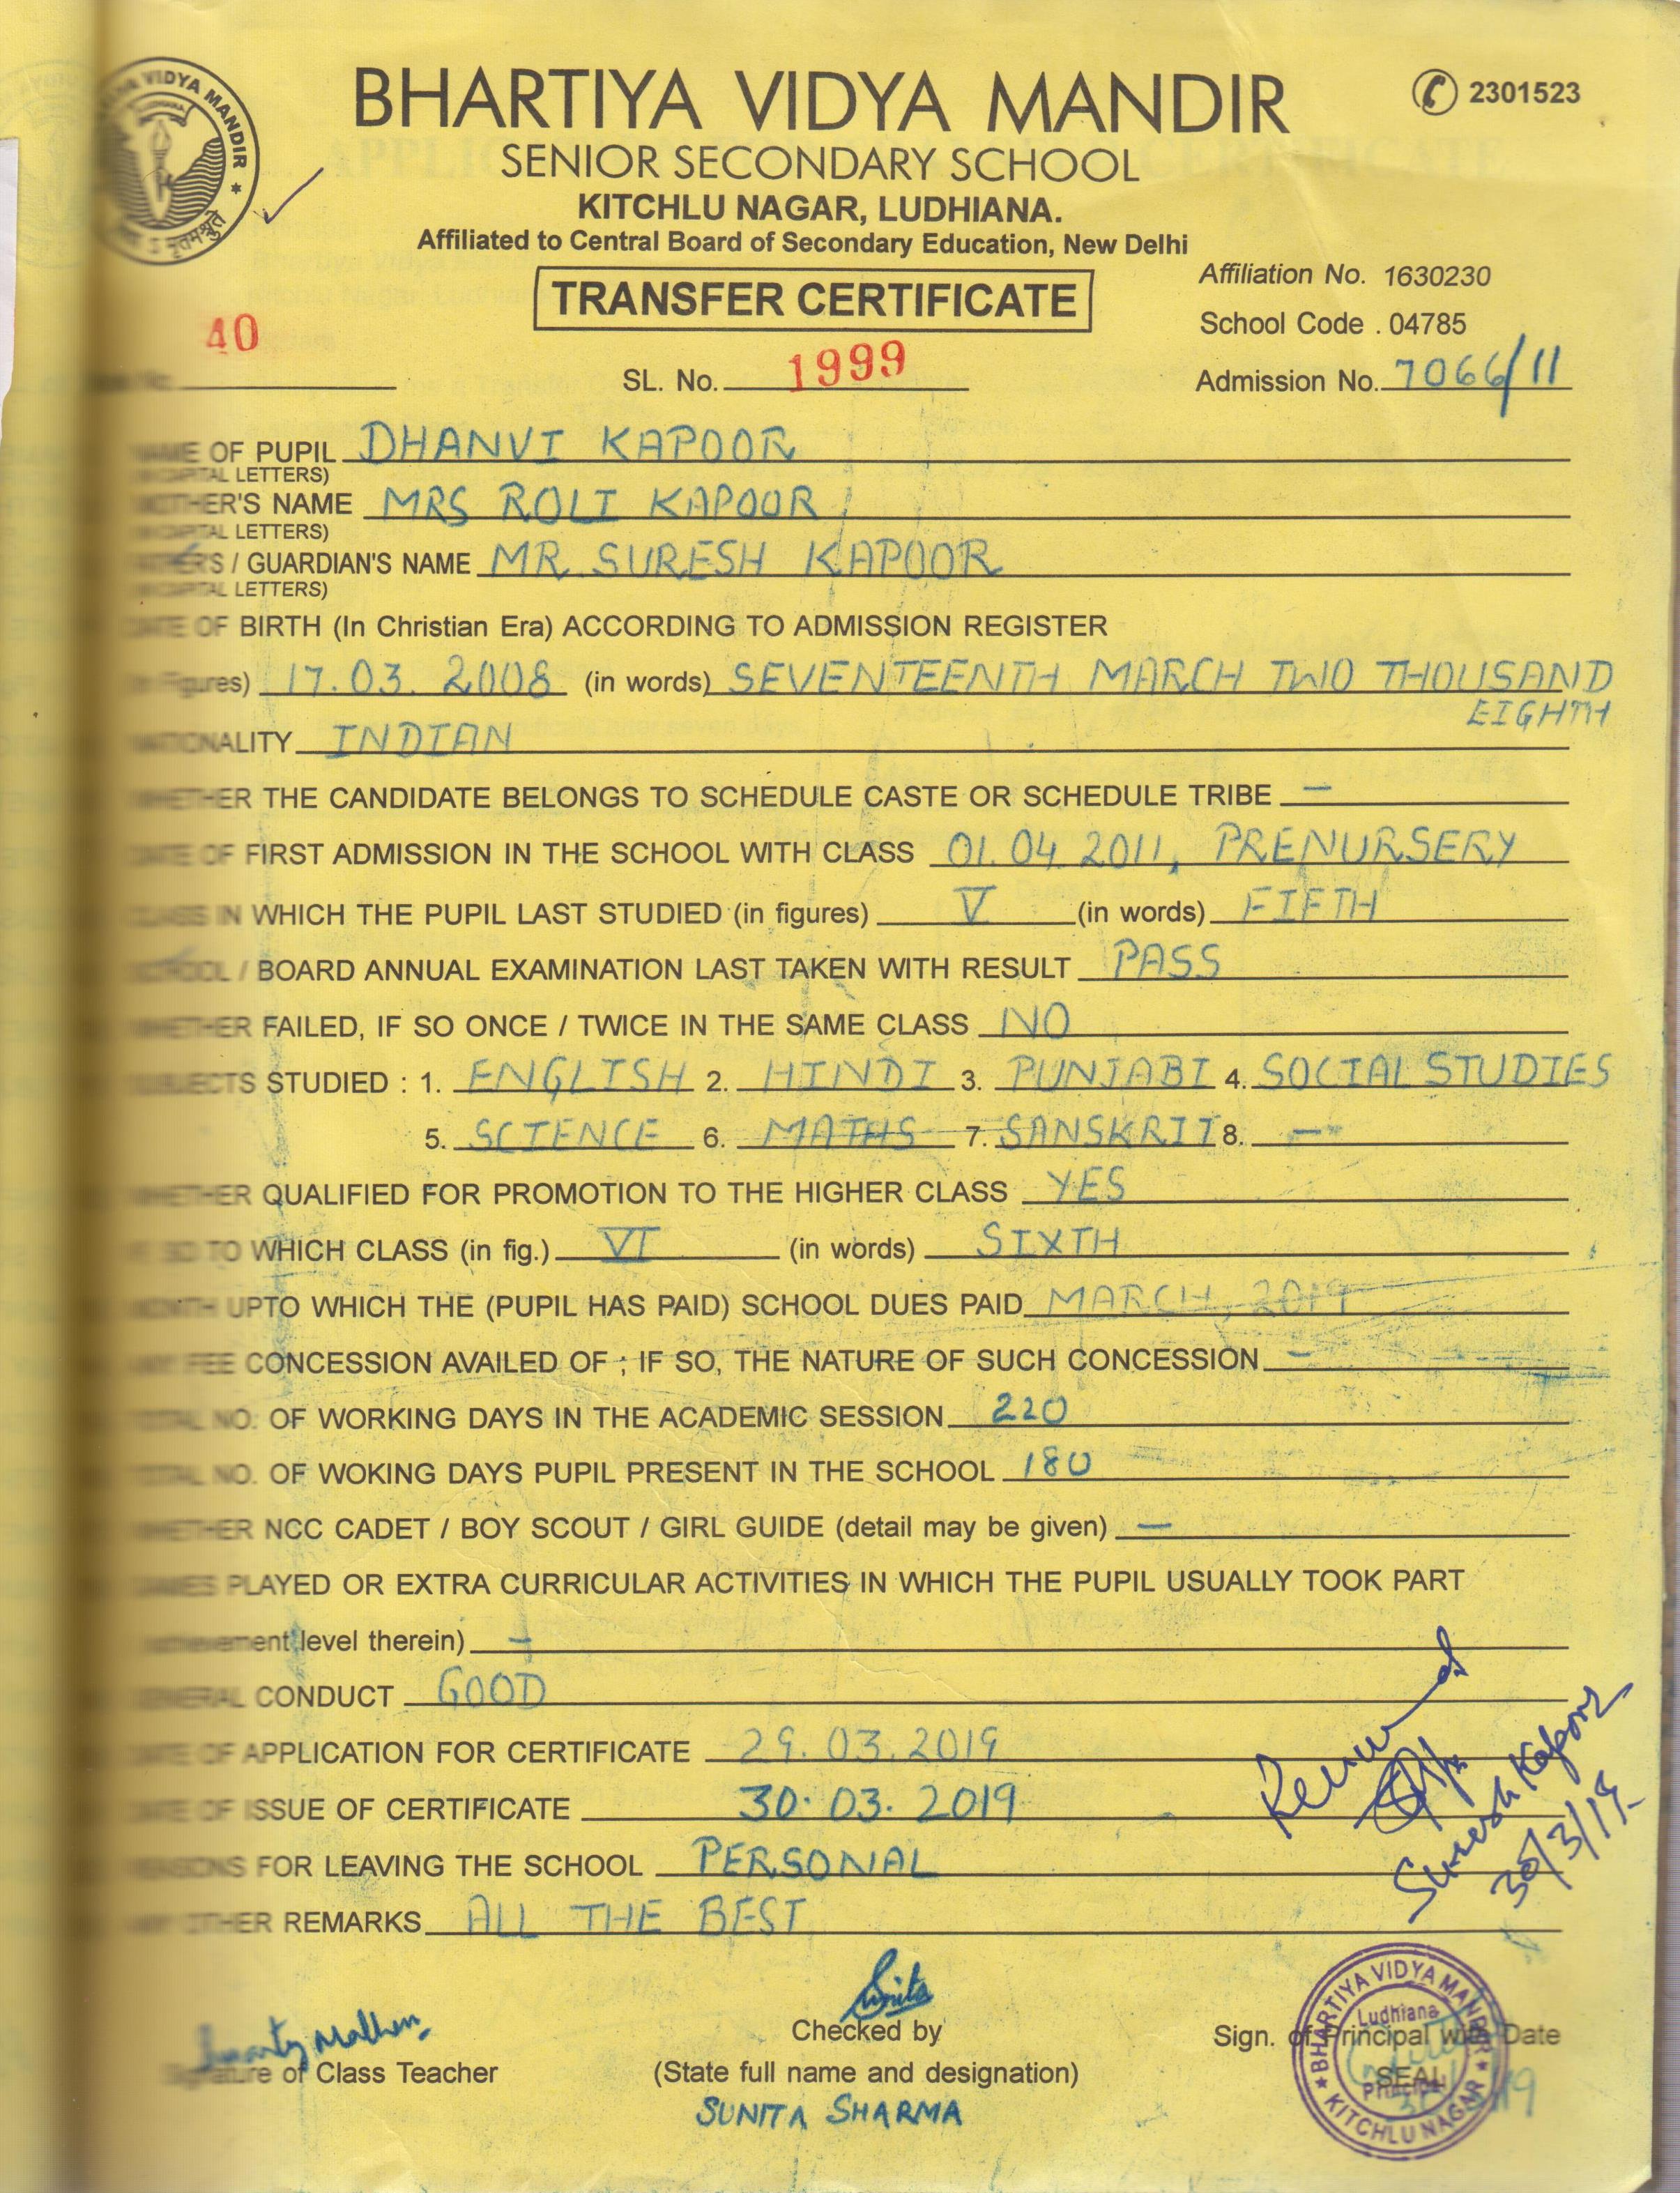 BHARTIYA VIDYA MANDIR
2301523
SENIOR SECONDARY SCHOOL
KITCHLU NAGAR, LUDHIANA.
Affiliated to Central Board of Secondary Education, New Delhi
TRANSFER CERTIFICATE
Affiliation No. 1630230
School Code . 04785
40
No. SL. No. 1999 Admission No. 7066/11
NAME OF PUPIL DHANVI KAPOOR
(IN CAPITAL LETTERS)
MOTHER'S NAME MRS ROLI KAPOOR
(IN CAPITAL LETTERS)
FATHER'S / GUARDIAN'S NAME MR. SURESH KAPOOR
(IN CAPITAL LETTERS)
DATE OF BIRTH (In Christian Era) ACCORDING TO ADMISSION REGISTER
(In Figures) 17.03.2008 (in words) SEVENTEENTH MARCH TWO THOUSAND
EIGHTH
NATIONALITY INDIAN
WHETHER THE CANDIDATE BELONGS TO SCHEDULE CASTE OR SCHEDULE TRIBE —
DATE OF FIRST ADMISSION IN THE SCHOOL WITH CLASS 01.04.2011, PRENURSERY
CLASS IN WHICH THE PUPIL LAST STUDIED (in figures) V (in words) FIFTH
SCHOOL / BOARD ANNUAL EXAMINATION LAST TAKEN WITH RESULT PASS
WHETHER FAILED, IF SO ONCE / TWICE IN THE SAME CLASS NO
SUBJECTS STUDIED : 1. ENGLISH 2. HINDI 3. PUNJABI 4. SOCIAL STUDIES
5. SCIENCE 6. MATHS 7. SANSKRIT 8. —
WHETHER QUALIFIED FOR PROMOTION TO THE HIGHER CLASS YES
IF SO TO WHICH CLASS (in fig.) VI (in words) SIXTH
MONTH UPTO WHICH THE (PUPIL HAS PAID) SCHOOL DUES PAID MARCH, 2019
ANY FEE CONCESSION AVAILED OF ; IF SO, THE NATURE OF SUCH CONCESSION —
TOTAL NO. OF WORKING DAYS IN THE ACADEMIC SESSION 220
TOTAL NO. OF WOKING DAYS PUPIL PRESENT IN THE SCHOOL 180
WHETHER NCC CADET / BOY SCOUT / GIRL GUIDE (detail may be given) —
GAMES PLAYED OR EXTRA CURRICULAR ACTIVITIES IN WHICH THE PUPIL USUALLY TOOK PART
achievement level therein) —
GENERAL CONDUCT GOOD
DATE OF APPLICATION FOR CERTIFICATE 29.03.2019
DATE OF ISSUE OF CERTIFICATE 30.03.2019
REASONS FOR LEAVING THE SCHOOL PERSONAL
ANY OTHER REMARKS ALL THE BEST
Suresh Kapoor
30/3/19
Sunita
Checked by
Signature of Class Teacher
(State full name and designation)
SUNITA SHARMA
Sign. of Principal with Date
SEAL
BHARTIYA VIDYA MANDIR
Ludhiana
Principal
KITCHLU NAGAR